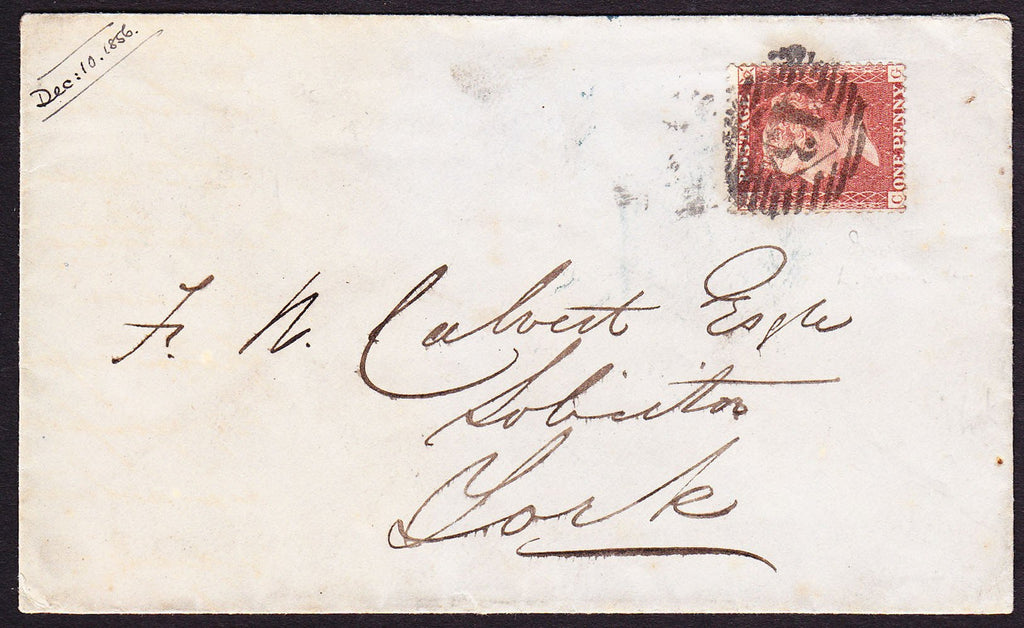 Dec: 10. 1856.
POSTAGE
ONE PENNY
C G
13
F. W. Calvert Esqre
Solicitor
York